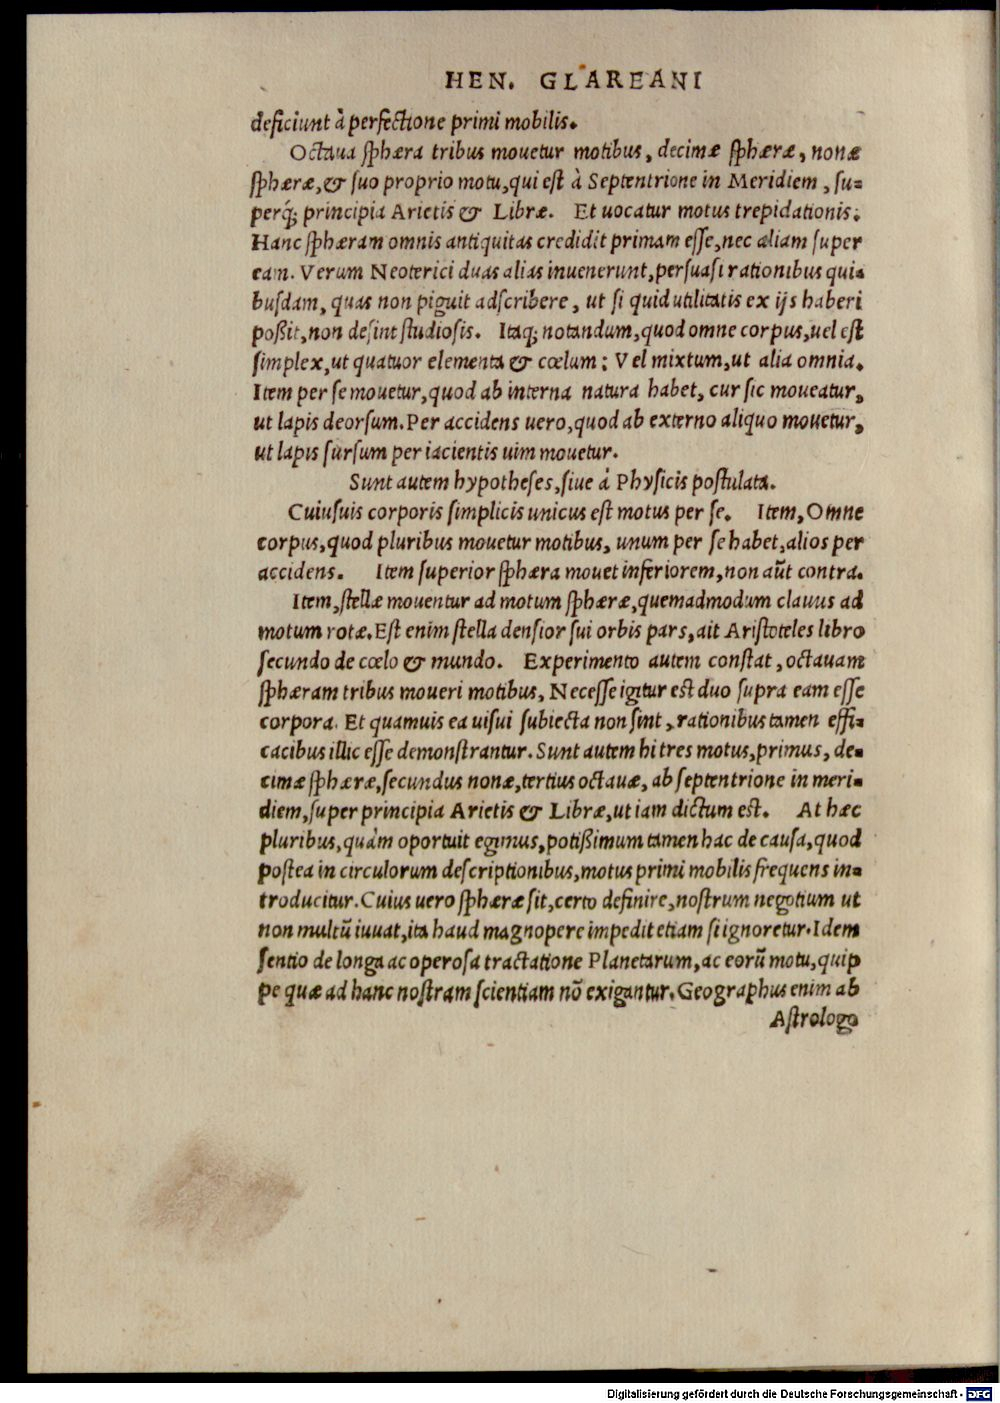 HEN. GLAREANI
deficiunt à perfectione primi mobilis.
Octaua sphæra tribus mouetur motibus, decimæ sphæræ, nonæ
sphæræ, & suo proprio motu, qui est à Septentrione in Meridiem, su-
perq́; principia Arietis & Libræ. Et uocatur motus trepidationis.
Hanc sphæram omnis antiquitas credidit primam esse, nec aliam super
eam. Verum Neoterici duas alias inuenerunt, persuasi rationibus qui-
busdam, quas non piguit adscribere, ut si quid utilitatis ex ijs haberi
poßit, non desint studiosis. Itaq; notandum, quod omne corpus, uel est
simplex, ut quatuor elementa & cœlum: Vel mixtum, ut alia omnia.
Item per se mouetur, quod ab interna natura habet, cur sic moueatur,
ut lapis deorsum. Per accidens uero, quod ab externo aliquo mouetur,
ut lapis sursum per iacientis uim mouetur.
Sunt autem hypotheses, siue à Physicis postulata.
Cuiusuis corporis simplicis unicus est motus per se. Item, Omne
corpus, quod pluribus mouetur motibus, unum per se habet, alios per
accidens. Item superior sphæra mouet inferiorem, non aũt contra.
Item, stellæ mouentur ad motum sphæræ, quemadmodum clauus ad
motum rotæ. Est enim stella densior sui orbis pars, ait Aristoteles libro
secundo de cœlo & mundo. Experimento autem constat, octauam
sphæram tribus moueri motibus, Necesse igitur est duo supra eam esse
corpora. Et quamuis ea uisui subiecta non sint, rationibus tamen effi-
cacibus illic esse demonstrantur. Sunt autem hi tres motus, primus, de-
cimæ sphæræ, secundus nonæ, tertius octauæ, ab septentrione in meri-
diem, super principia Arietis & Libræ, ut iam dictum est. At hæc
pluribus, quàm oportuit egimus, potißimum tamen hac de causa, quod
postea in circulorum descriptionibus, motus primi mobilis frequens in-
troducitur. Cuius uero sphæræ sit, certo definire, nostrum negotium ut
non multũ iuuat, ita haud magnopere impedit etiam si ignoretur. Idem
sentio de longa ac operosa tractatione Planetarum, ac eorũ motu, quip
pe quæ ad hanc nostram scientiam nõ exigantur. Geographus enim ab
Astrologo
Digitalisierung gefördert durch die Deutsche Forschungsgemeinschaft - DFG